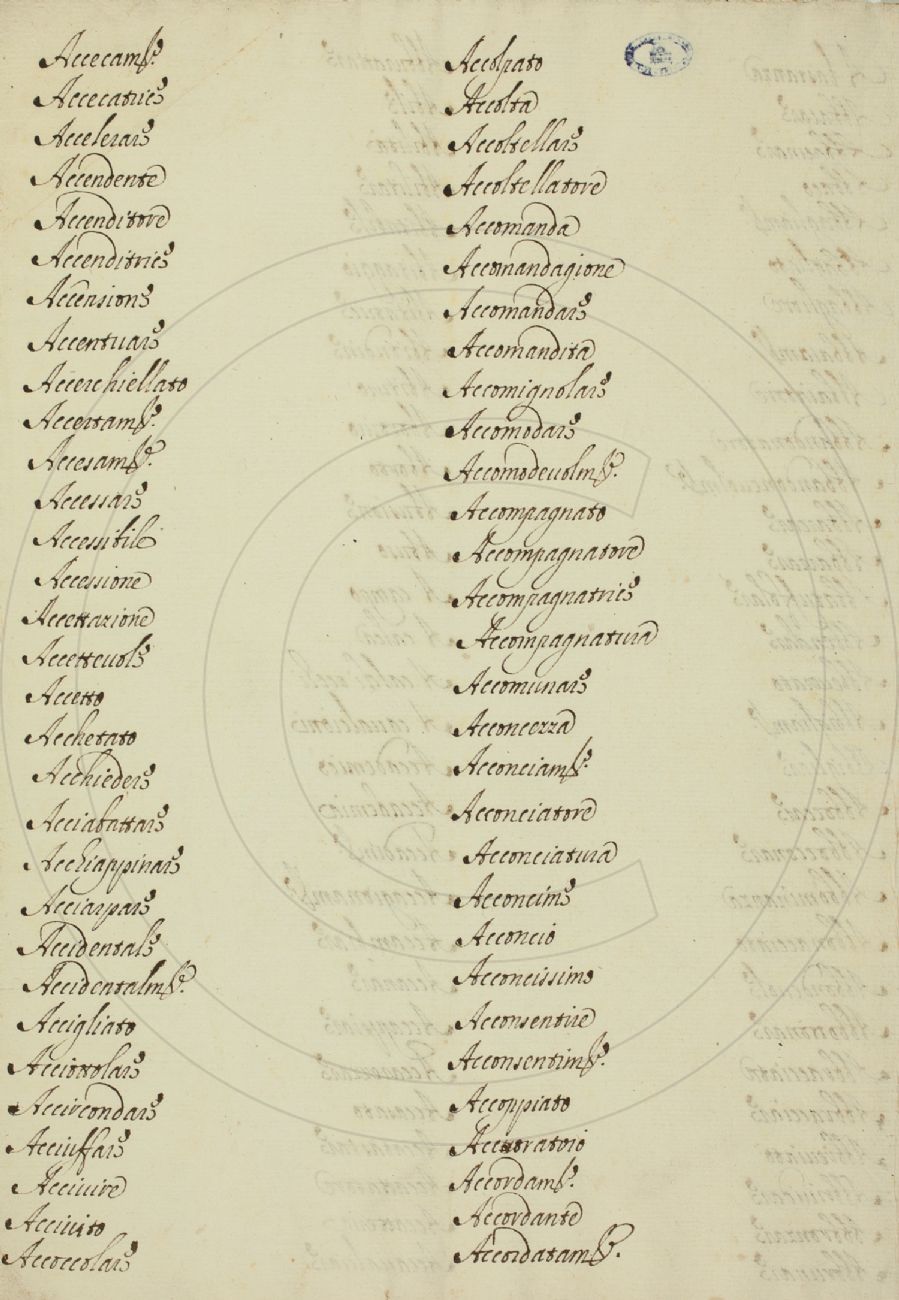 Accecamto.
Accecatrice
Accelerare
Accendente
Accenditore
Accenditrice
Accensione
Accentuare
Accerchiellato
Accertamto.
Accesamte.
Accessare
Accessibile
Accessione
Accettazione
Accetteuole
Accetto
Acchetato
Acchiedere
Acciabattare
Acchiappinare
Acciarpare
Accidentale
Accidentalmte.
Accigliato
Acciottolare
Accircondare
Acciuffare
Acciuire
Acciuito
Accoccolare
Accolpato
Accolta
Accoltellare
Accoltellatore
Accomanda
Accomandagione
Accomandare
Accomandita
Accomignolare
Accomodare
Accomodeuolmte.
Accompagnato
Accompagnatore
Accompagnatrice
Accompagnatura
Accomunare
Acconcezza
Acconciamto.
Acconciatore
Acconciatura
Acconcime
Acconcio
Acconcissimo
Acconsentire
Acconsentimto.
Accoppiato
Accoratoio
Accordamto.
Accordante
Accordatamte.